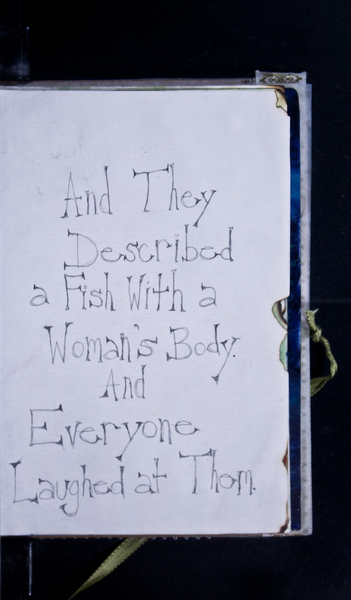 And They
Described
a Fish With a
Woman's Body.
And
Everyone
Laughed at Them.